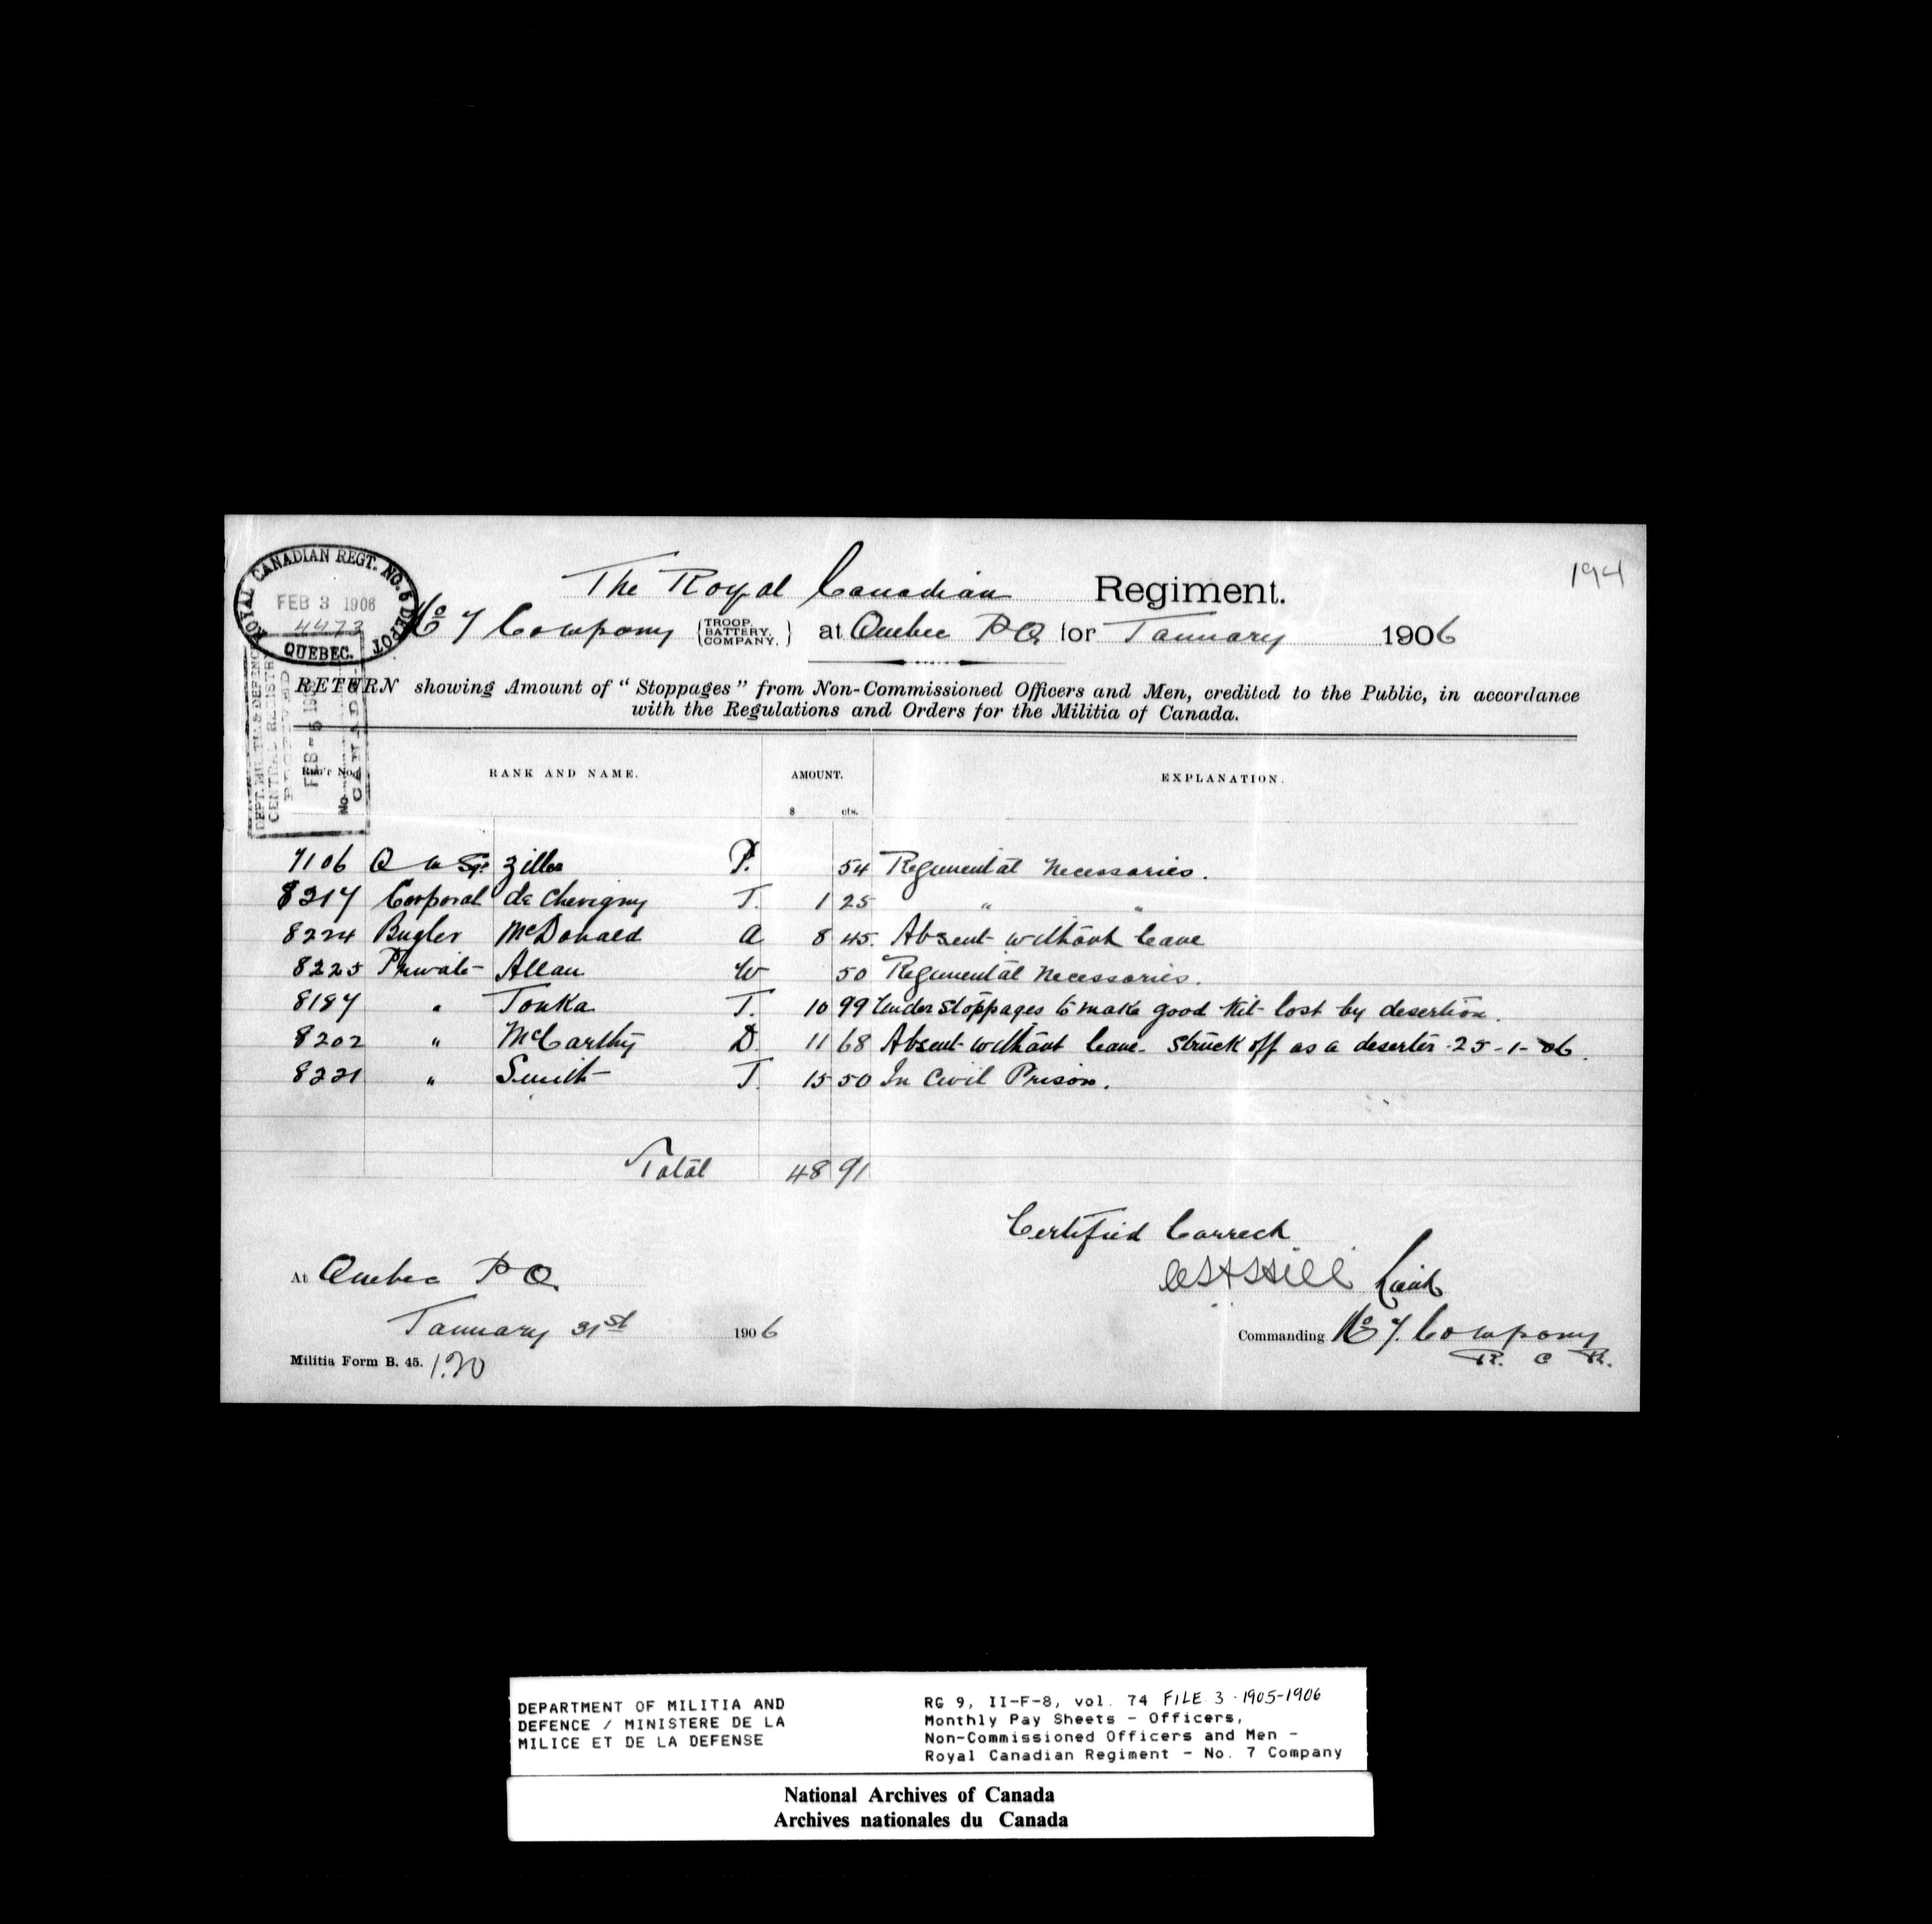 194
ROYAL CANADIAN REGT. NO. 6 DEPOT
FEB 3 1906
4473
QUEBEC.
The Royal Canadian Regiment.
No 7 Company {TROOP, BATTERY, COMPANY.} at Quebec P Q for January 1906
DEPT. MILITIA & DEFENCE
CENTRAL REGISTRY
FEB - 5 19
No
CANADA
RETURN showing Amount of "Stoppages" from Non-Commissioned Officers and Men, credited to the Public, in accordance
with the Regulations and Orders for the Militia of Canada.
Reg'r No. RANK AND NAME. AMOUNT. EXPLANATION.
$ cts.
7106 Q M Sgt. Zillax P. 54 Regimental Necessaries.
8217 Corporal de Chevigny T. 1 25 " "
8224 Bugler McDonald A 8 45. Absent without leave
8225 Private Allan W 50 Regimental Necessaries.
8187 " Tonka T. 10 99 Under stoppages to make good Kit lost by desertion.
8202 " McCarthy D. 11 68 Absent without leave. Struck off as a deserter 25-1-06.
8221 " Smith T. 15 50 In Civil Prison.
Total 48 91
Certified Correct
At Quebec P Q
January 31st 1906
Commanding No 7. Company
R. C R.
Militia Form B. 45. 1.20
DEPARTMENT OF MILITIA AND
DEFENCE / MINISTERE DE LA
MILICE ET DE LA DEFENSE
RG 9, II-F-8, vol. 74 FILE 3 · 1905-1906
Monthly Pay Sheets - Officers,
Non-Commissioned Officers and Men -
Royal Canadian Regiment - No. 7 Company
National Archives of Canada
Archives nationales du Canada